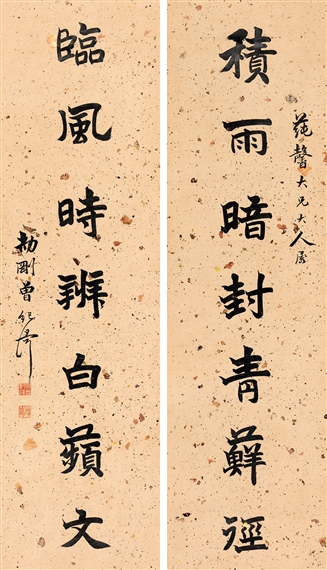 馨大兄大人属
積雨暗封青蘚徑
臨風時辨白蘋文
劼剛曾紀澤